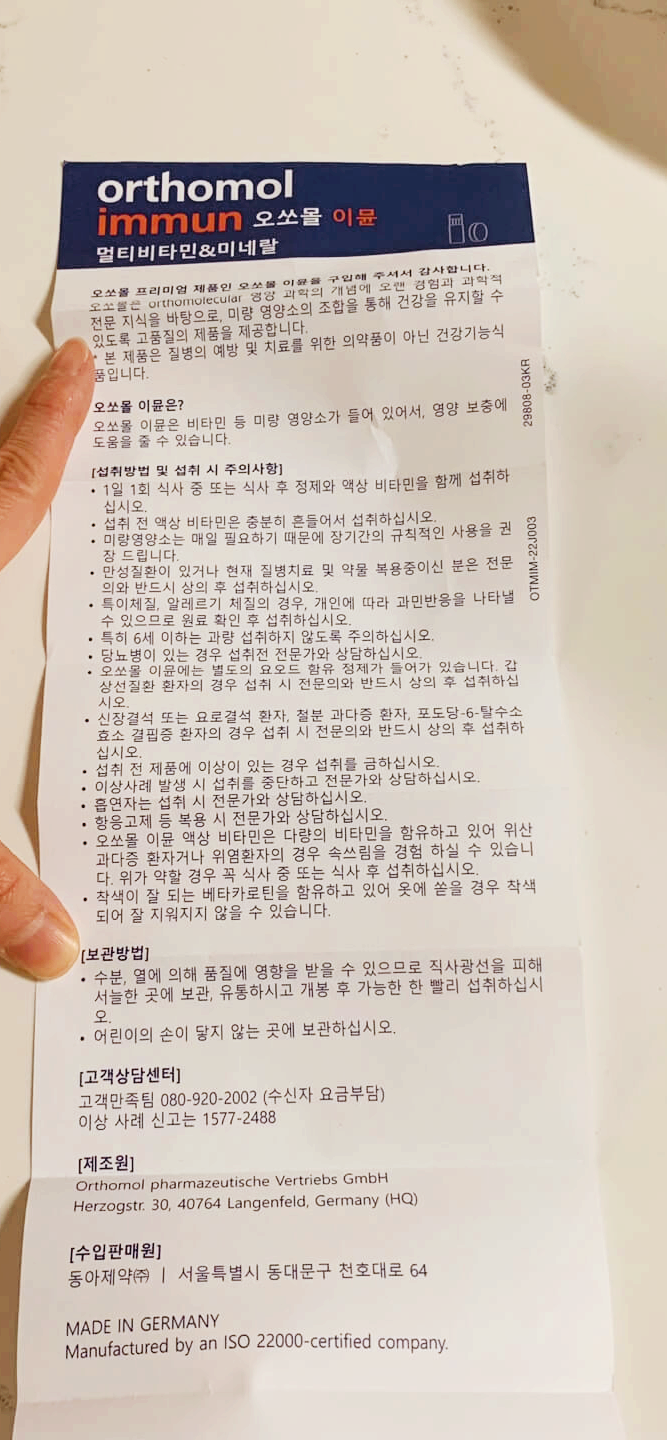 orthomol
immun 오쏘몰 이뮨
멀티비타민&미네랄
오쏘몰 프리미엄 제품인 오쏘몰 이뮨을 구입해 주셔서 감사합니다.
오쏘몰은 orthomolecular 영양 과학의 개념에 오랜 경험과 과학적
전문 지식을 바탕으로, 미량 영양소의 조합을 통해 건강을 유지할 수
있도록 고품질의 제품을 제공합니다.
* 본 제품은 질병의 예방 및 치료를 위한 의약품이 아닌 건강기능식
품입니다.
오쏘몰 이뮨은?
오쏘몰 이뮨은 비타민 등 미량 영양소가 들어 있어서, 영양 보충에
도움을 줄 수 있습니다.
[섭취방법 및 섭취 시 주의사항]
• 1일 1회 식사 중 또는 식사 후 정제와 액상 비타민을 함께 섭취하
십시오.
• 섭취 전 액상 비타민은 충분히 흔들어서 섭취하십시오.
• 미량영양소는 매일 필요하기 때문에 장기간의 규칙적인 사용을 권
장 드립니다.
• 만성질환이 있거나 현재 질병치료 및 약물 복용중이신 분은 전문
의와 반드시 상의 후 섭취하십시오.
• 특이체질, 알레르기 체질의 경우, 개인에 따라 과민반응을 나타낼
수 있으므로 원료 확인 후 섭취하십시오.
• 특히 6세 이하는 과량 섭취하지 않도록 주의하십시오.
• 당뇨병이 있는 경우 섭취전 전문가와 상담하십시오.
• 오쏘몰 이뮨에는 별도의 요오드 함유 정제가 들어가 있습니다. 갑
상선질환 환자의 경우 섭취 시 전문의와 반드시 상의 후 섭취하십
시오.
• 신장결석 또는 요로결석 환자, 철분 과다증 환자, 포도당-6-탈수소
효소 결핍증 환자의 경우 섭취 시 전문의와 반드시 상의 후 섭취하
십시오.
• 섭취 전 제품에 이상이 있는 경우 섭취를 금하십시오.
• 이상사례 발생 시 섭취를 중단하고 전문가와 상담하십시오.
• 흡연자는 섭취 시 전문가와 상담하십시오.
• 항응고제 등 복용 시 전문가와 상담하십시오.
• 오쏘몰 이뮨 액상 비타민은 다량의 비타민을 함유하고 있어 위산
과다증 환자거나 위염환자의 경우 속쓰림을 경험 하실 수 있습니
다. 위가 약할 경우 꼭 식사 중 또는 식사 후 섭취하십시오.
• 착색이 잘 되는 베타카로틴을 함유하고 있어 옷에 쏟을 경우 착색
되어 잘 지워지지 않을 수 있습니다.
[보관방법]
• 수분, 열에 의해 품질에 영향을 받을 수 있으므로 직사광선을 피해
서늘한 곳에 보관, 유통하시고 개봉 후 가능한 한 빨리 섭취하십시
오.
• 어린이의 손이 닿지 않는 곳에 보관하십시오.
[고객상담센터]
고객만족팀 080-920-2002 (수신자 요금부담)
이상 사례 신고는 1577-2488
[제조원]
Orthomol pharmazeutische Vertriebs GmbH
Herzogstr. 30, 40764 Langenfeld, Germany (HQ)
[수입판매원]
동아제약㈜ | 서울특별시 동대문구 천호대로 64
MADE IN GERMANY
Manufactured by an ISO 22000-certified company.
29808-03KR
OTMIM-22J003